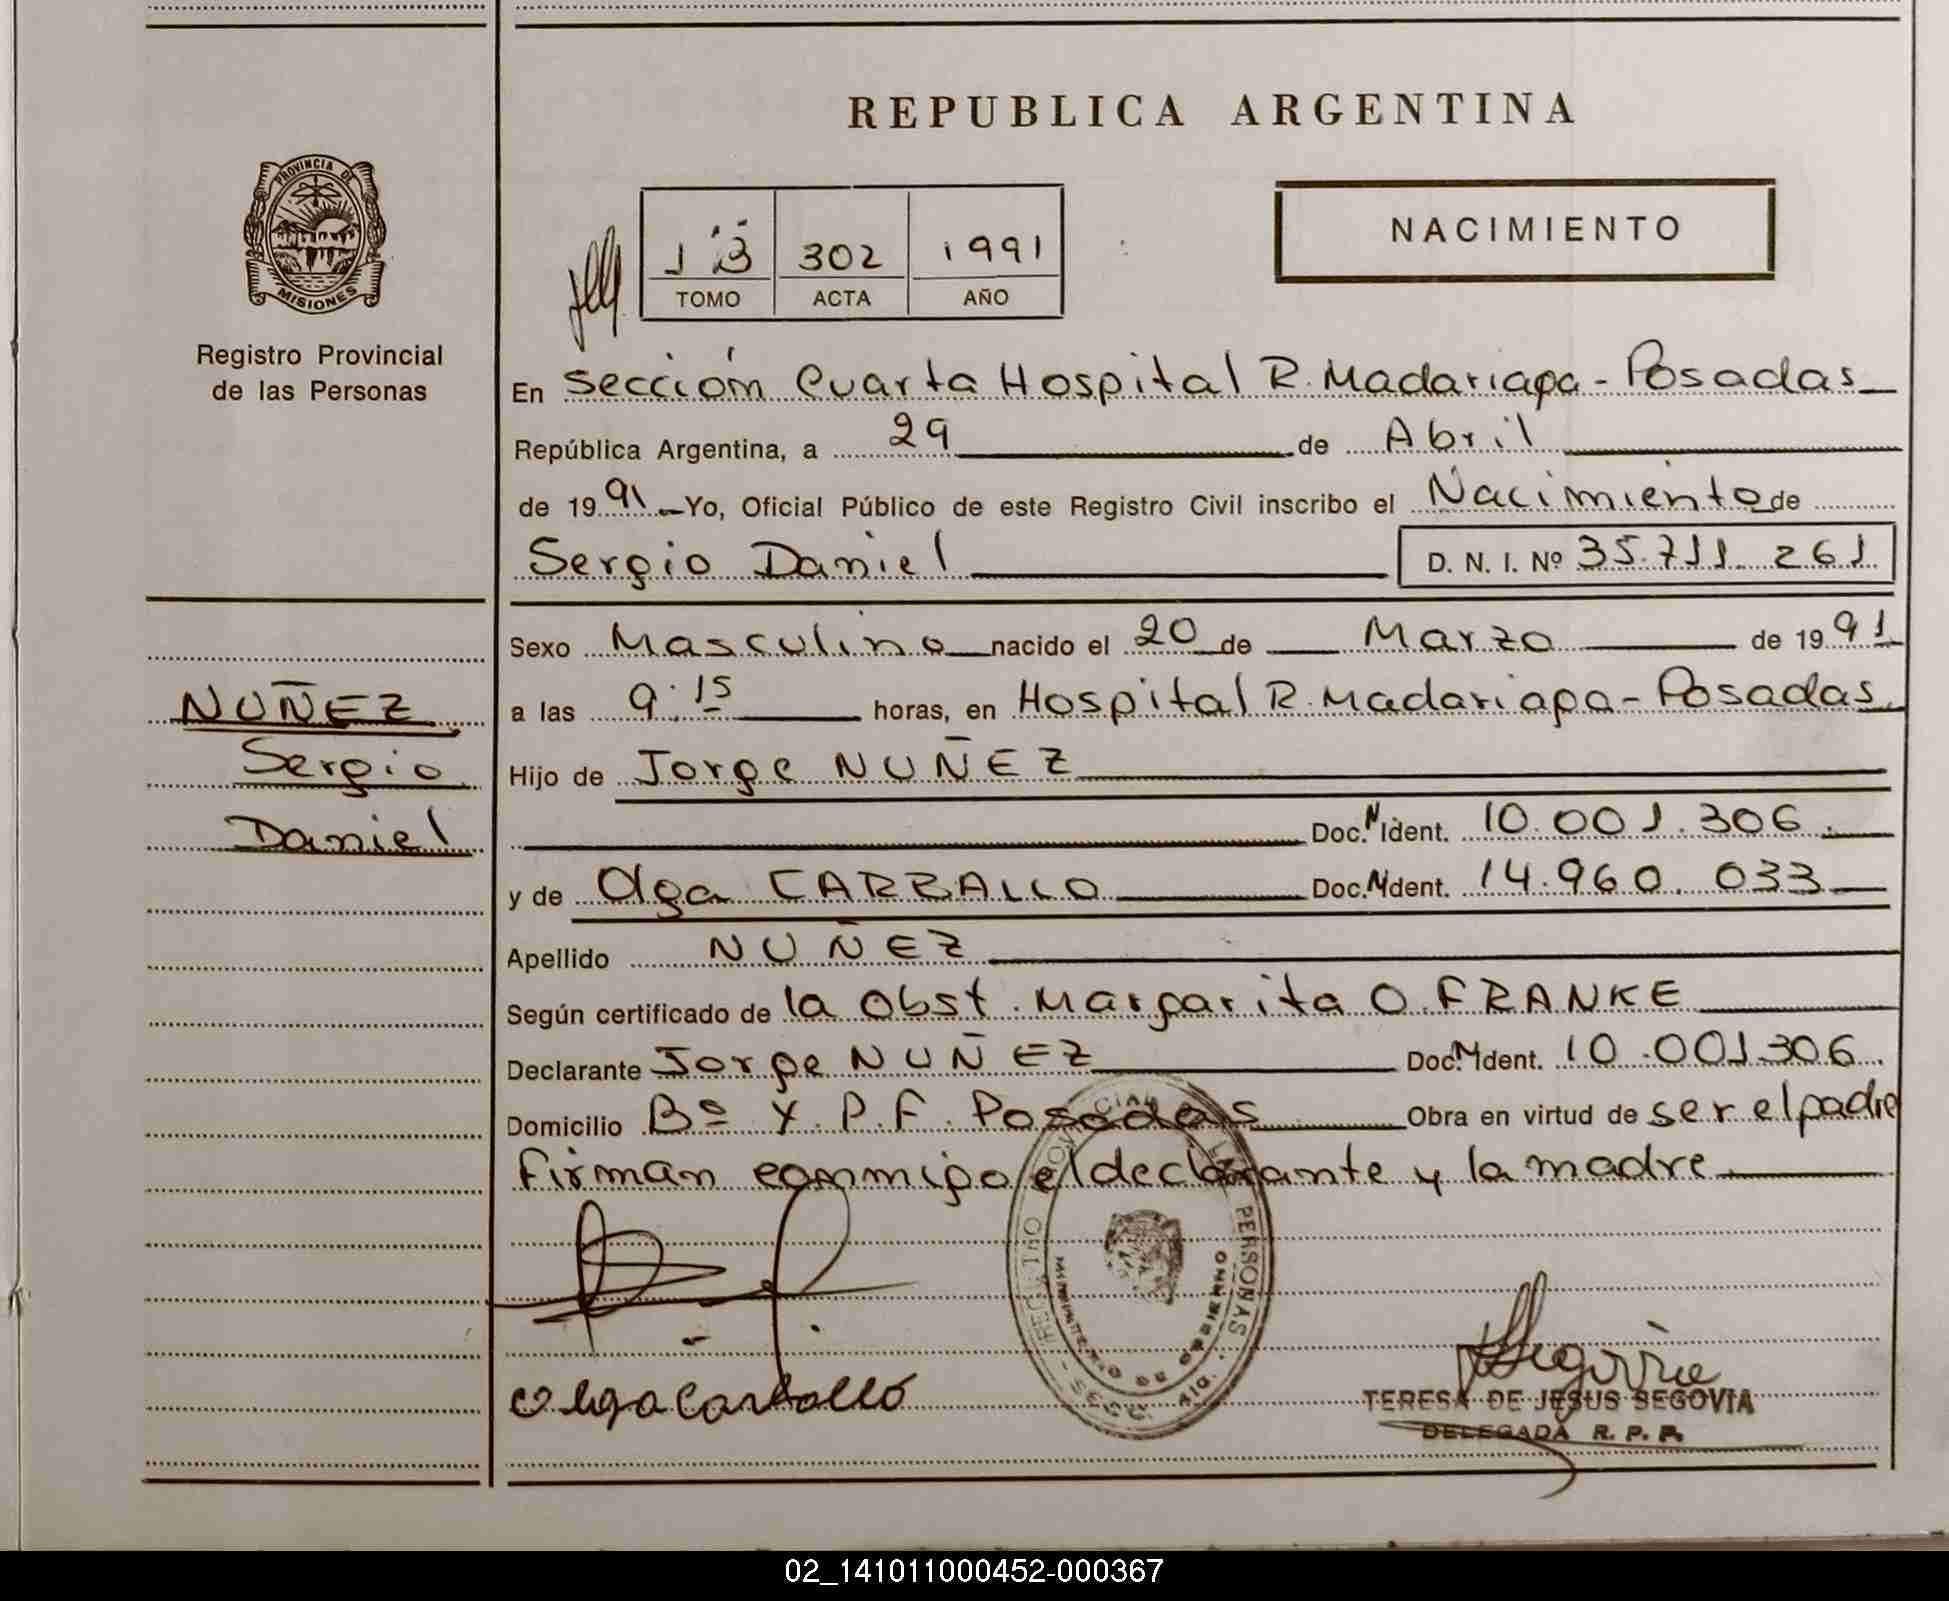 REPUBLICA ARGENTINA
PROVINCIA DE
MISIONES
Registro Provincial
de las Personas
NACIMIENTO
302 1991
TOMO ACTA AÑO
En Sección Cuarta Hospital R. Madariaga - Posadas
República Argentina, a 29 de Abril
de 1991 Yo, Oficial Público de este Registro Civil inscribo el Nacimiento de
Sergio Daniel D. N. I. Nº 35.711.261
Sexo Masculino nacido el 20 de Marzo de 1991
NUÑEZ
Sergio
Daniel
a las 9.15 horas, en Hospital R. Madariaga - Posadas
Hijo de Jorge NUÑEZ
Doc. N Ident. 10.001.306
y de Olga CARBALLO Doc. N Ident. 14.960.033
Apellido NUÑEZ
Según certificado de la Obst. Margarita O. FRANKE
Declarante Jorge NUÑEZ Doc. N Ident. 10.001306
Domicilio Bº Y.P.F. Posadas Obra en virtud de ser el padre
Firman conmigo el declarante y la madre
REGISTRO PERSONAS
MINISTERIO DE GOBIERNO
Olga Carballo
Segovia
TERESA DE JESUS SEGOVIA
DELEGADA R. P. P.
02_141011000452-000367